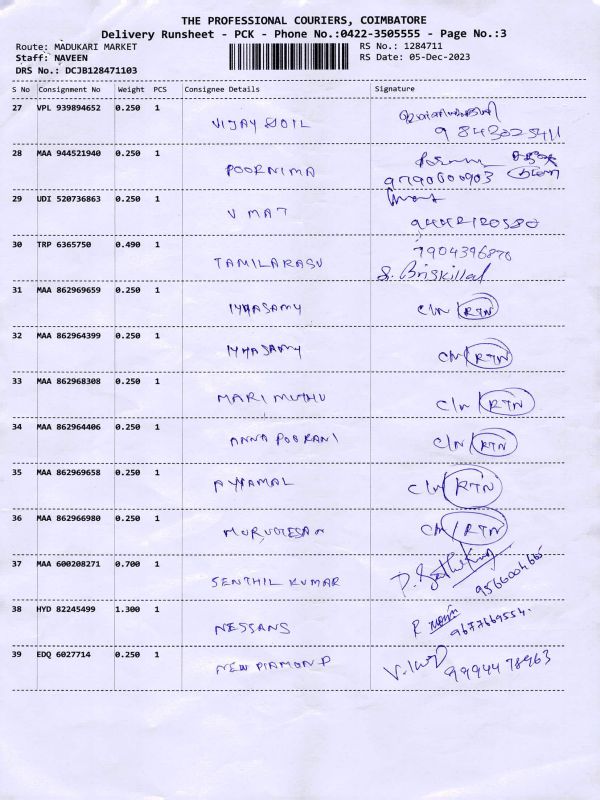 THE PROFESSIONAL COURIERS, COIMBATORE
Delivery Runsheet - PCK - Phone No.:0422-3505555 - Page No.:3
Route: MADUKARI MARKET RS No.: 1284711
Staff: NAVEEN RS Date: 05-Dec-2023
DRS No.: DCJB128471103
S No Consignment No Weight PCS Consignee Details Signature
27 VPL 939894652 0.250 1
VIJAY SOIL
9843025411
28 MAA 944521940 0.250 1
POORNIMA
9790600903
29 UDI 520736863 0.250 1
V MAT
30 TRP 6365750 0.490 1 7904396870
TAMILARASU S. Briskillal
31 MAA 862969659 0.250 1
IYYASAMY C/N RTN
32 MAA 862964399 0.250 1
IYYASAMY C/N RTN
33 MAA 862968308 0.250 1
MARI MUTHU C/N RTN
34 MAA 862964406 0.250 1
ANNA POORANI C/N RTN
35 MAA 862969658 0.250 1
AYYAMAL C/N RTN
36 MAA 862966980 0.250 1
MURUGESAN C/N RTN
37 MAA 600208271 0.700 1
SENTHIL KUMAR
38 HYD 82245499 1.300 1
NESSANS 9677669554.
39 EDQ 6027714 0.250 1
NEW DIAMOND 9994478963